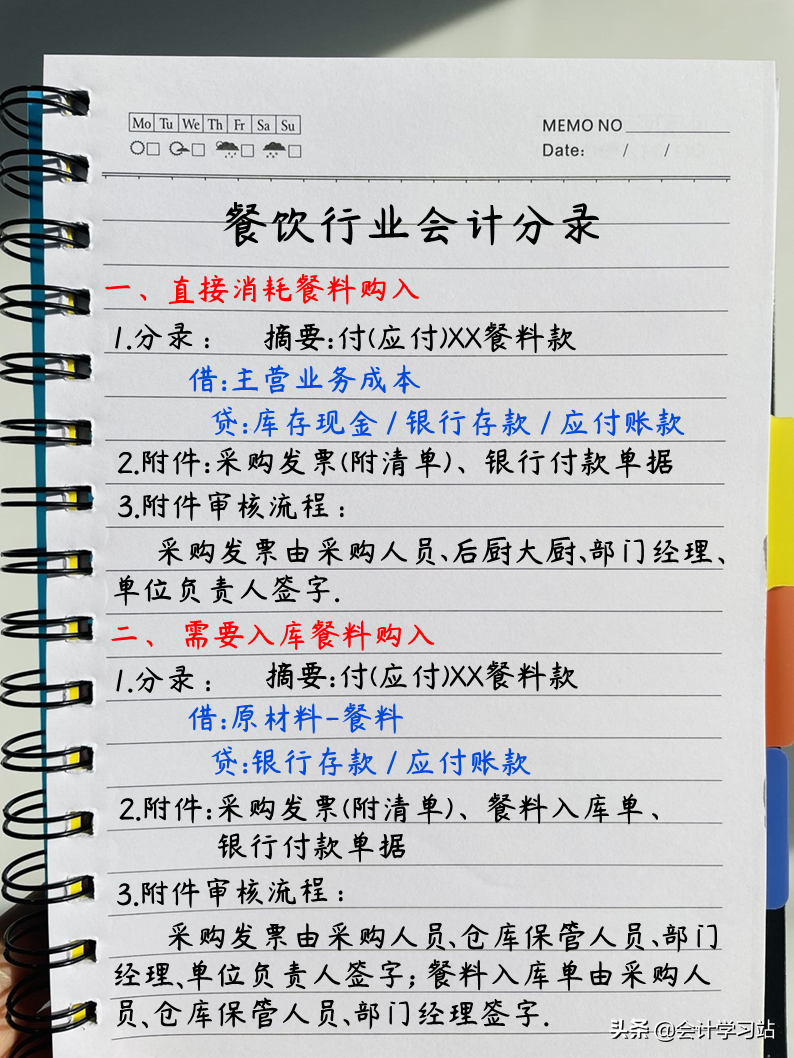 Mo Tu We Th Fr Sa Su
MEMO NO
Date: / /
餐饮行业会计分录
一、直接消耗餐料购入
1.分录： 摘要:付(应付)XX餐料款
借:主营业务成本
贷:库存现金/银行存款/应付账款
2.附件:采购发票(附清单)、银行付款单据
3.附件审核流程：
采购发票由采购人员、后厨大厨、部门经理、
单位负责人签字.
二、需要入库餐料购入
1.分录： 摘要:付(应付)XX餐料款
借:原材料-餐料
贷:银行存款/应付账款
2.附件:采购发票(附清单)、餐料入库单、
银行付款单据
3.附件审核流程：
采购发票由采购人员、仓库保管人员、部门
经理、单位负责人签字；餐料入库单由采购人
员、仓库保管人员、部门经理签字.
头条 @会计学习站